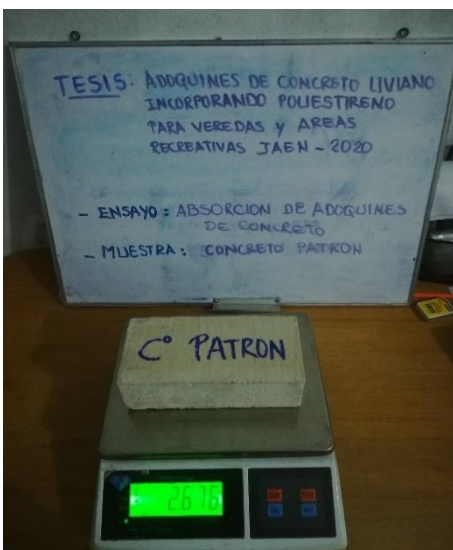 TESIS: ADOQUINES DE CONCRETO LIVIANO
INCORPORANDO POLIESTIRENO
PARA VEREDAS Y AREAS
RECREATIVAS JAEN - 2020
- ENSAYO: ABSORCION DE ADOQUINES
DE CONCRETO
- MUESTRA: CONCRETO PATRON
C° PATRON
2676